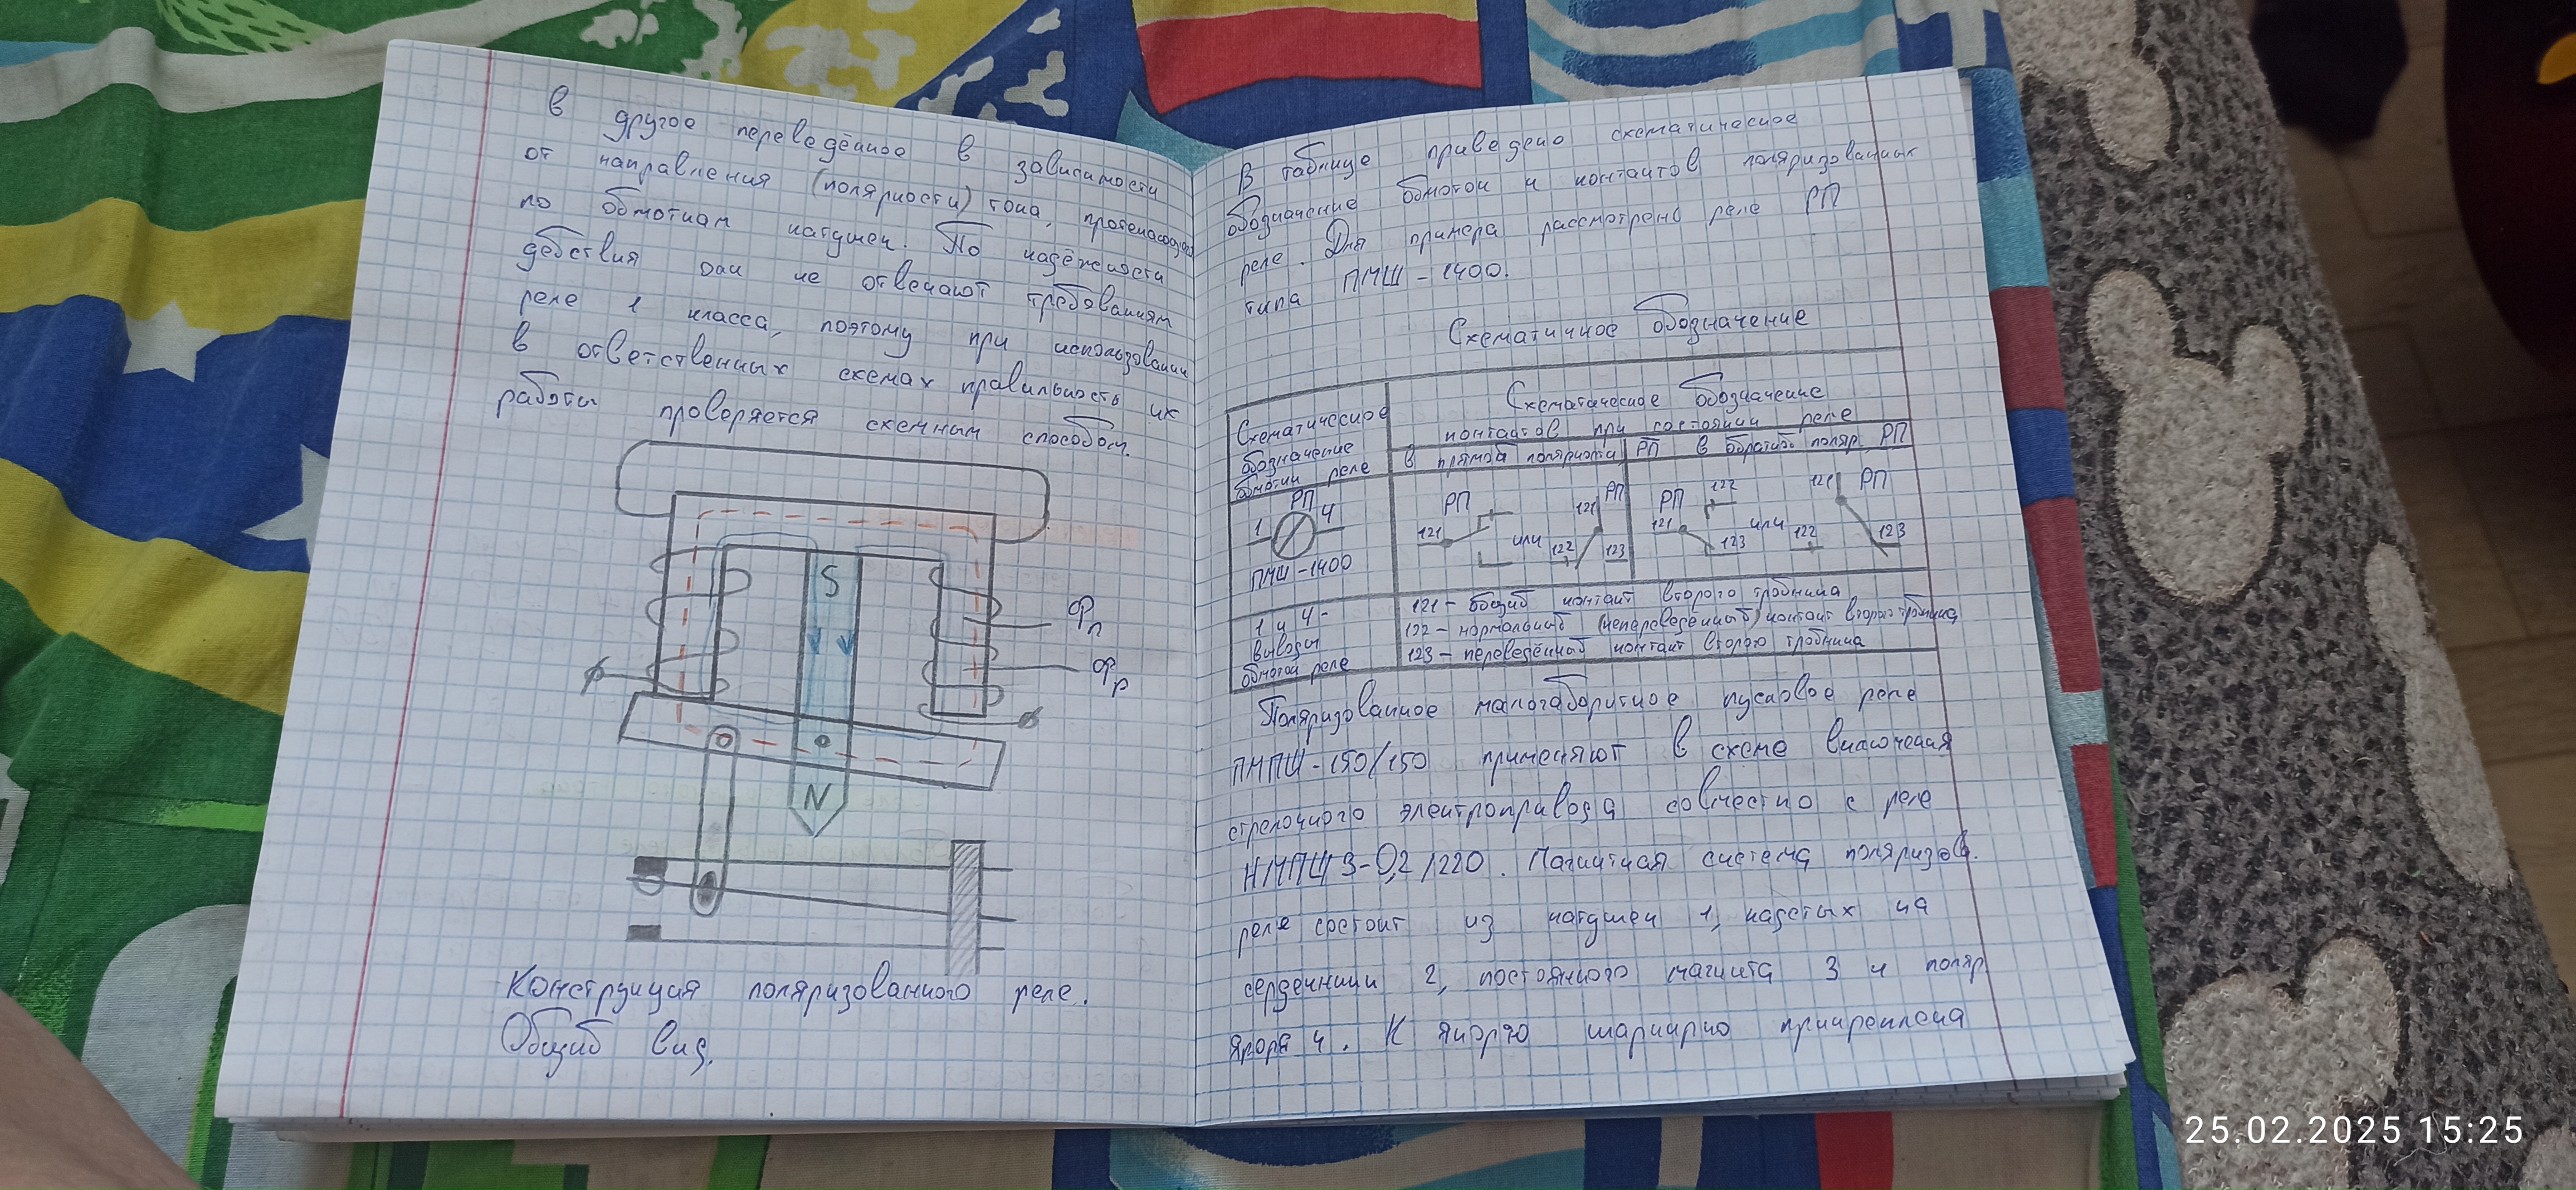 в другое переведённое в зависимости
от направления (полярности) тока, протекающего
по обмоткам катушек. По надёжности
действия они не отвечают требованиям
реле 1 класса, поэтому при использовании
в ответственных схемах правильность их
работы проверяется схемным способом.
S
Фп
Фр
N
Конструкция поляризованного реле.
Общий вид.
В таблице приведено схематическое
обозначение обмоток и контактов поляризованных
реле. Для примера рассмотрено реле РП
типа ПМШ-1400.
Схематичное обозначение
Схематическое
обозначение
обмотки реле
Схематическое обозначение
контактов при состоянии реле
в прямой полярности РП
в обратной поляр. РП
РП
1 4
ПМШ-1400
РП
121
или
121 РП
122 123
РП 122
121
123
или
121 РП
122
123
1 и 4 -
выводы
обмотой реле
121 - общий контакт второго тройника
122 - нормальный (непереведённый) контакт второго тройника
123 - переведённый контакт второго тройника
Поляризованное малогабаритное пусковое реле
ПМПШ-150/150 применяют в схеме включения
стрелочного электропривода совместно с реле
НМПШ3-0,2/220. Магнитная система поляризов.
реле состоит из катушек 1, надетых на
сердечники 2, постоянного магнита 3 и поляр
якоря 4. К якорю шарнирно прикреплена
25.02.2025 15:25